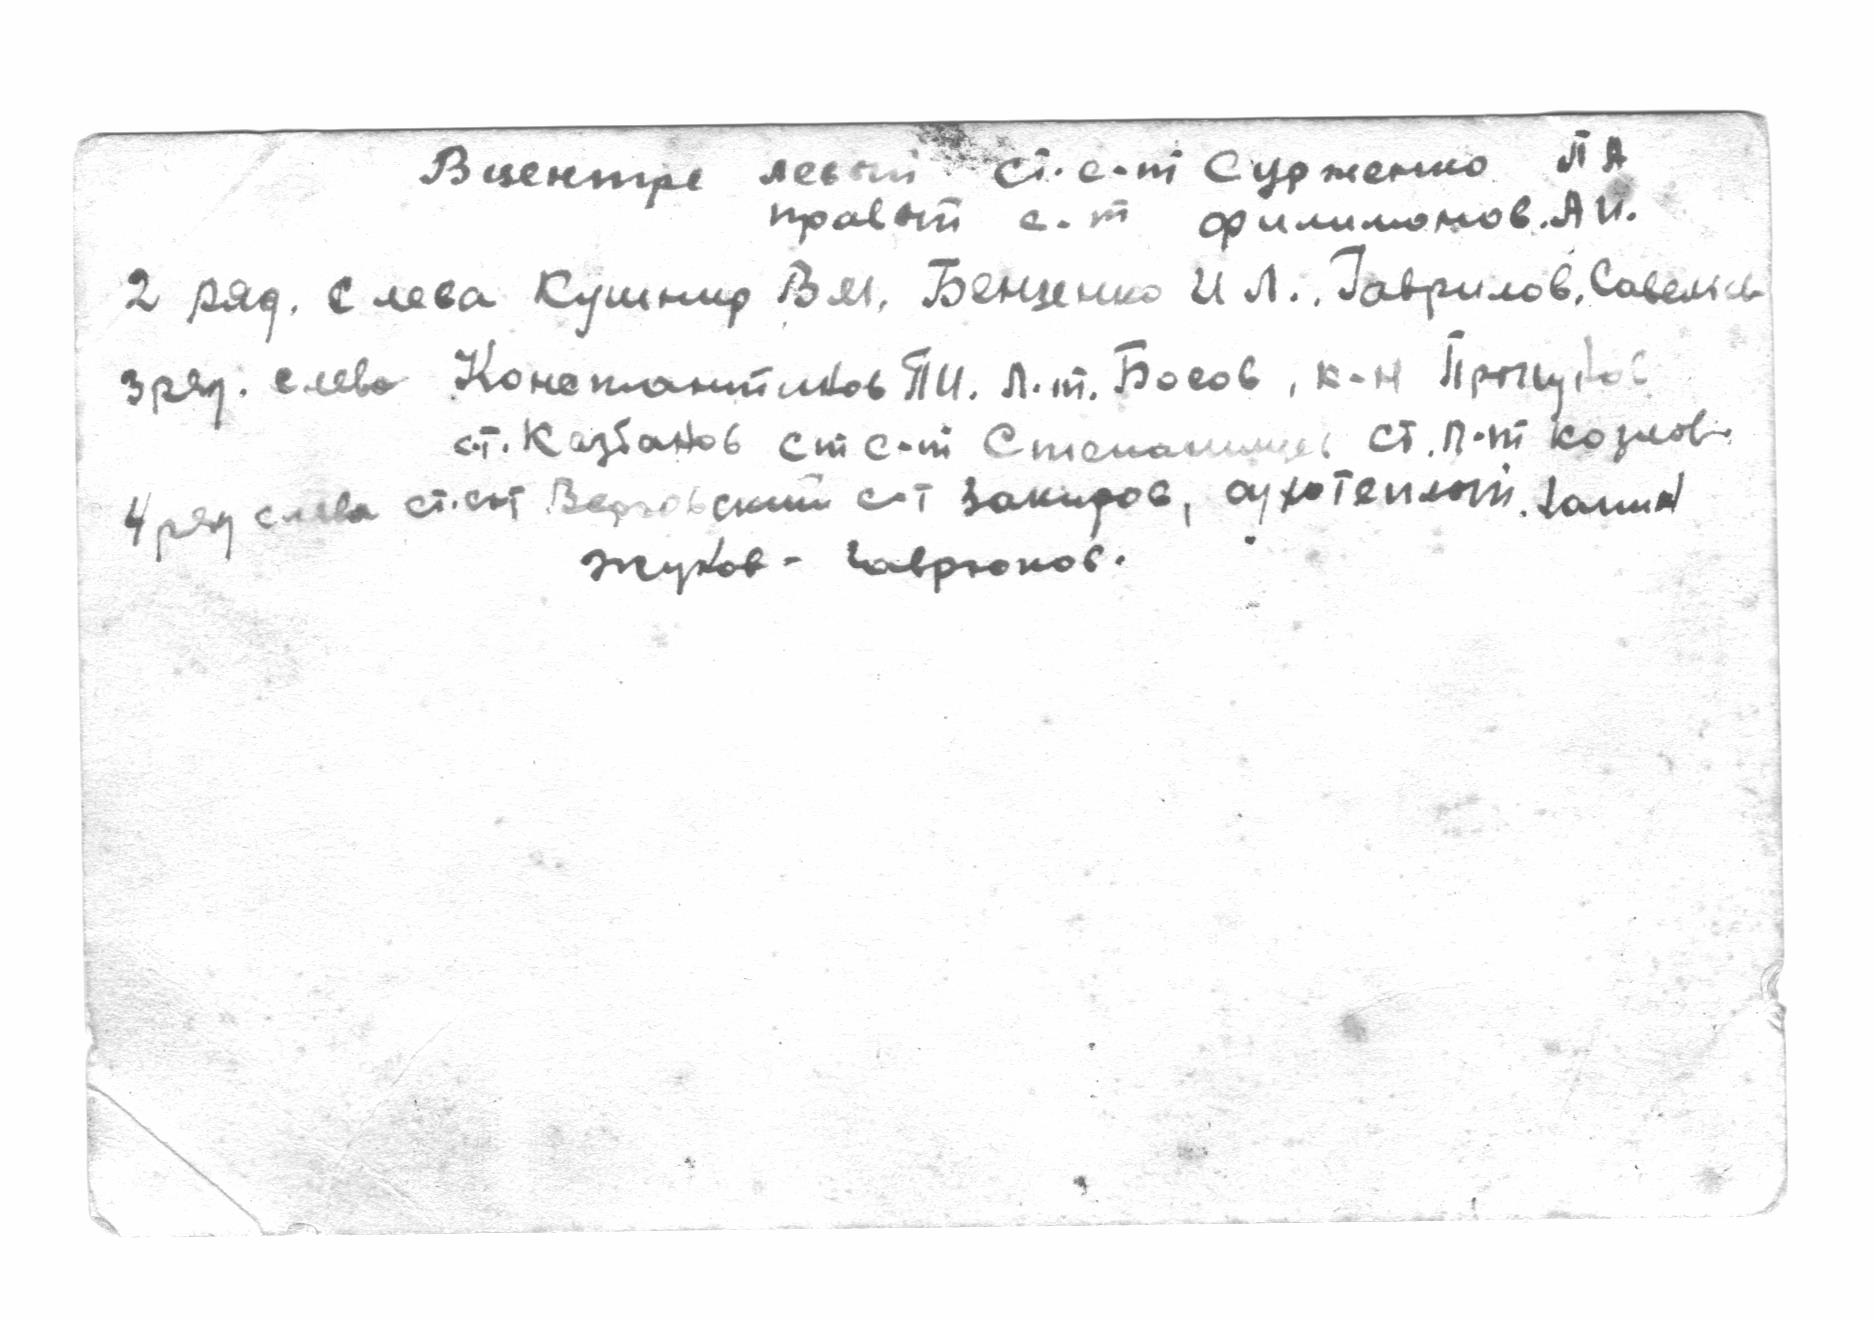 Вцентре левый ст. с-т Сурженко П А
правый с-т Филимонов. А И.
2 ряд. слева Кушнир В М. Бенценко И Л., Гаврилов, Савельев
3 ряд. слева Константинов П И. Л-т. Босов, к-н
с-т. Казбанов ст с-т Степанищев ст. л-т козлов.
4 ряд слева ст. с-т Верховский с-т Закиров, сухотеплый.
Жуков - Гаврюков.